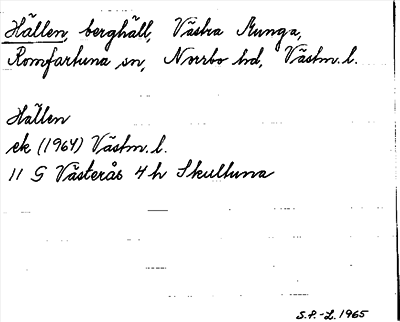 Hällen, berghäll, Västra Munga,
Romfartuna sn, Norrbo hd, Västm. l.
Hällen
ek (1964) Västm. l.
11 G Västerås 4 h Skultuna
S.P.-L. 1965